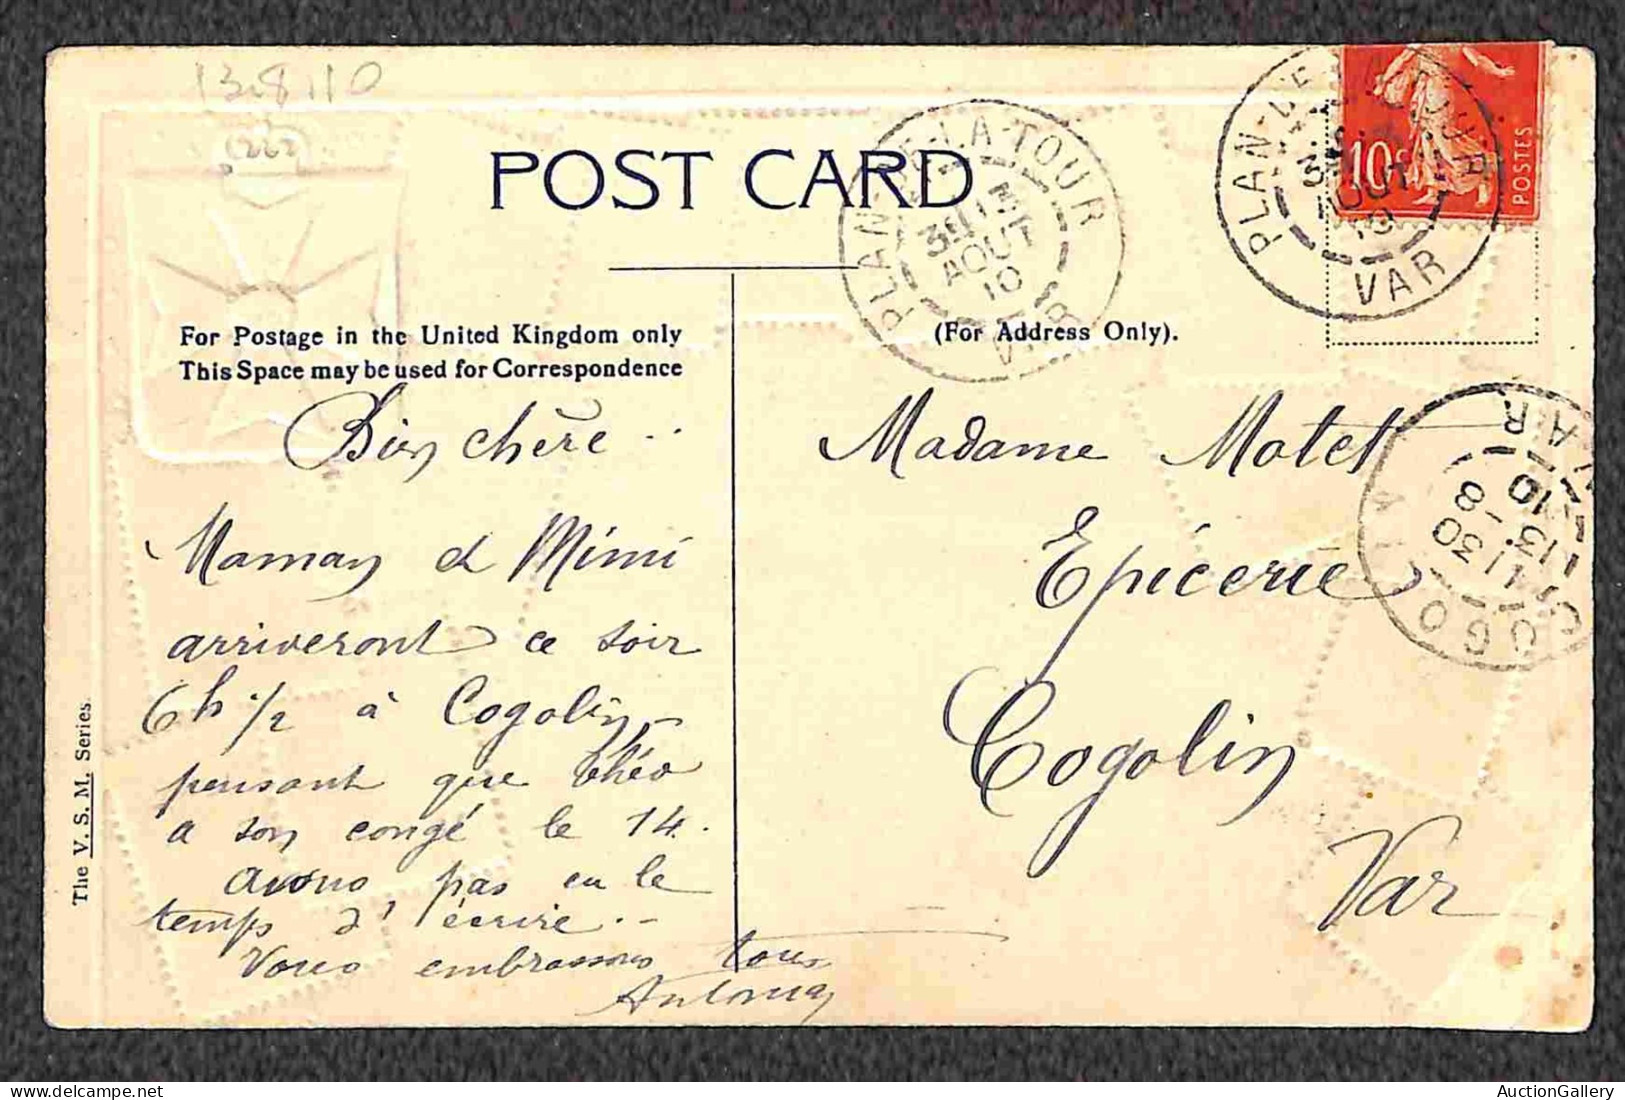 13.8.10
(222)
POST CARD
PLAN-DE-LA-TOUR
3E 13
AOUT
10
VAR
PLAN-DE-LA-TOUR
3E
AOUT
10
VAR
10c
POSTES
For Postage in the United Kingdom only
This Space may be used for Correspondence
(For Address Only).
Bien chère ..
Maman et Mimi
arriveront ce soir
6h 1/2 à Cogolin -
pensant que Théo
a son congé le 14.
avons pas eu le
temps d'écrire. -
Vous embrassons tous
Antonia
Madame Motet
Epicerie
Cogolin
Var
COGOLIN
8 30
13-8
10
VAR
The V. S. M. Series.
AuctionGallery